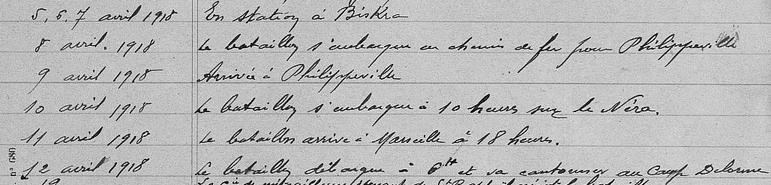 5, 6, 7 avril 1918 En station à Biskra
8 avril. 1918 Le bataillon s'embarque en chemin de fer pour Philippeville
9 avril 1918 Arrivée à Philippeville
10 avril 1918 Le bataillon s'embarque à 10 heures sur le Néra.
11 avril 1918 Le bataillon arrive à Marseille à 18 heures.
12 avril 1918 Le bataillon débarque à 6H et va cantonner au Camp Delorme